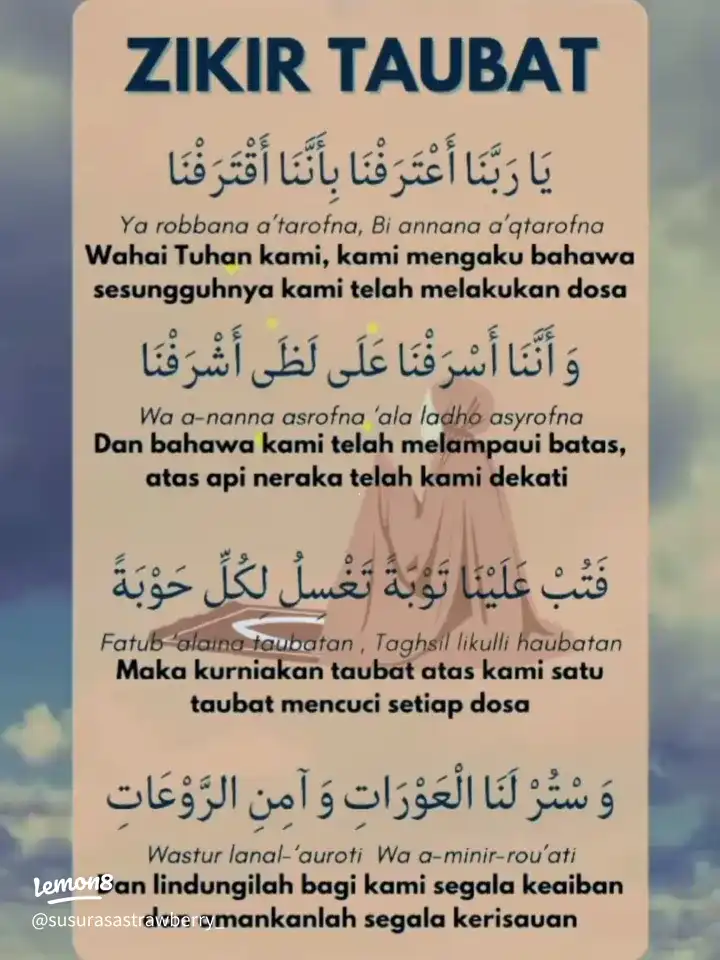 ZIKIR TAUBAT
يَا رَبَّنَا أَعْتَرَفْنَا بِأَنَّنَا أَقْتَرَفْنَا
Ya robbana a'tarofna, Bi annana a'qtarofna
Wahai Tuhan kami, kami mengaku bahawa
sesungguhnya kami telah melakukan dosa
وَ أَنَّنَا أَسْرَفْنَا عَلَى لَظَى أَشْرَفْنَا
Wa a-nanna asrofna 'ala ladho asyrofna
Dan bahawa kami telah melampaui batas,
atas api neraka telah kami dekati
فَتُبْ عَلَيْنَا تَوْبَةً تَغْسِلُ لِكُلِّ حَوْبَةً
Fatub 'alaina taubatan , Taghsil likulli haubatan
Maka kurniakan taubat atas kami satu
taubat mencuci setiap dosa
وَ سْتُرْ لَنَا الْعَوْرَاتِ وَ آمِنِ الرَّوْعَاتِ
Wastur lanal-'auroti Wa a-minir-rou'ati
lemon8
Dan lindungilah bagi kami segala keaiban
@susurasastrawberry_
amankanlah segala kerisauan